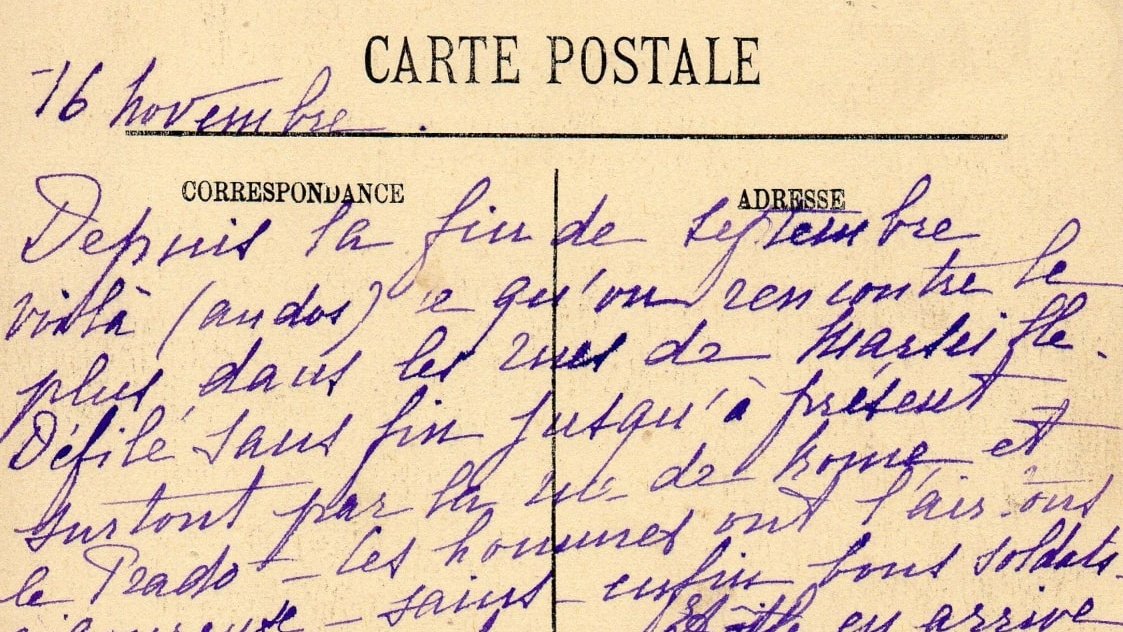 CARTE POSTALE
16 novembre.
CORRESPONDANCE
ADRESSE
Depuis la fin de septembre
voilà (au dos) ce qu'on rencontre le
plus dans les rues de Marseille.
Défilé sans fin jusqu'à présent
surtout par la rue de Rome et
le Prado – Ces hommes ont l'air tous
– sains – enfin bons soldats –
en arrive